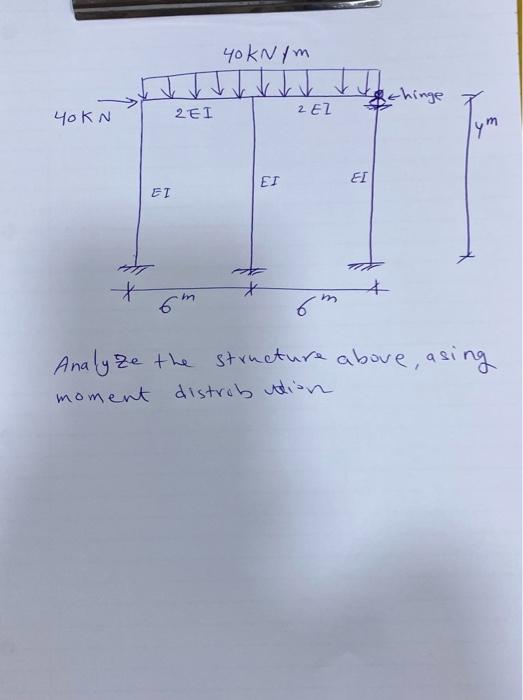 40kN/m
40KN
2EI
2EI
hinge
4m
EI
EI
EI
6m
6m
Analyze the structure above, asing
moment distrob ution